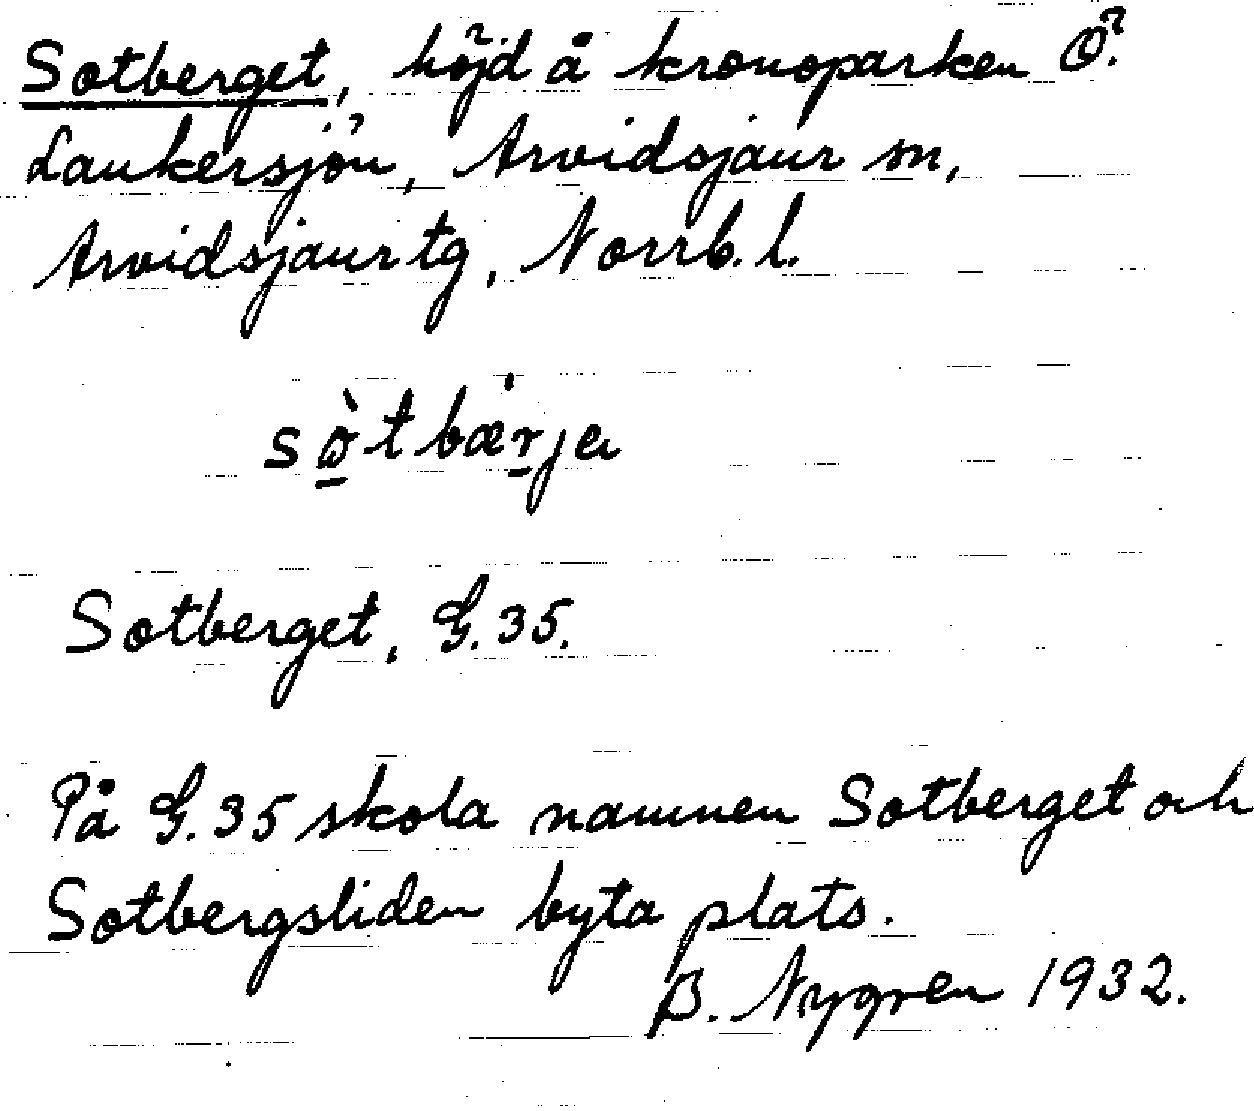 Sotberget, höjd å kronoparken Ö.
Laukersjön, Arvidsjaur sn,
Arvidsjaur tg, Norrb. l.
sò̱tbæṟja
Sotberget, G.35.
På G.35 skola namnen Sotberget och
Sotbergsliden byta plats.
B. Nygren 1932.